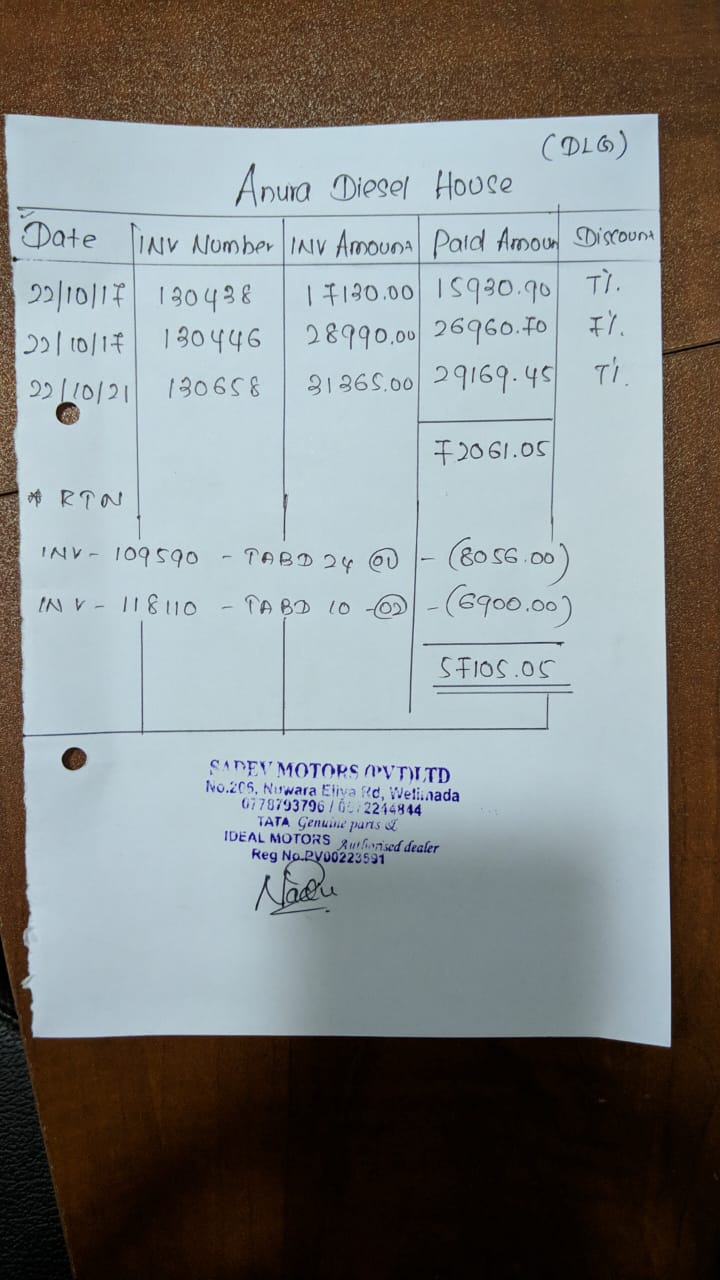 (DLG)
Anura Diesel House
Date INV Number INV Amount Paid Amoun Discount
22/10/17 130438 17130.00 15930.90 7%.
22/10/17 130446 28990.00 26960.70 7%.
22/10/21 130658 31365.00 29169.45 7%.
72061.05
* RTN
INV - 109590 - TABD 24 01 - (8056.00)
INV - 118110 - TABD 10 - 02 - (6900.00)
57105.05
SADEV MOTORS (PVT)LTD
No.206, Nuwara Eliya Rd, Welimada
0778793796 / 2244844
TATA Genuine parts &
IDEAL MOTORS Authorised dealer
Reg No.PV00223591